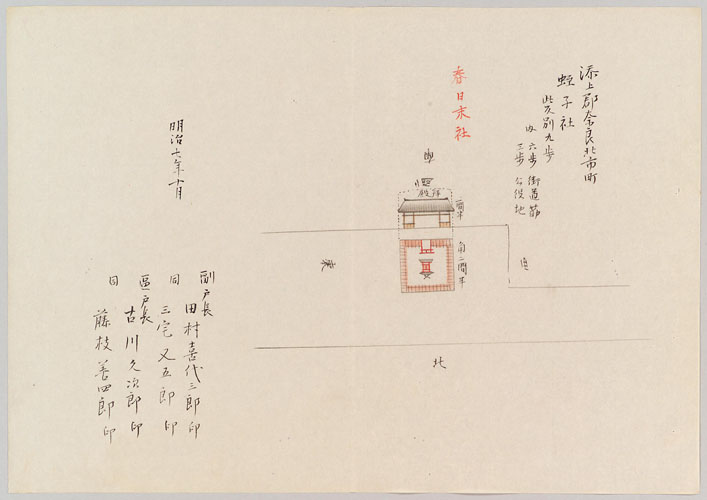 添上郡奈良北市町
蛭子社
此反別九歩
内 六歩 街道筋
三歩 公役地
春日末社
拝殿
二間半
角二間半
道
北
明治十年十月
副戸長
田村喜代三郎 印
同
三宅又五郎 印
区戸長
古川久次郎 印
同
藤枝善四郎 印